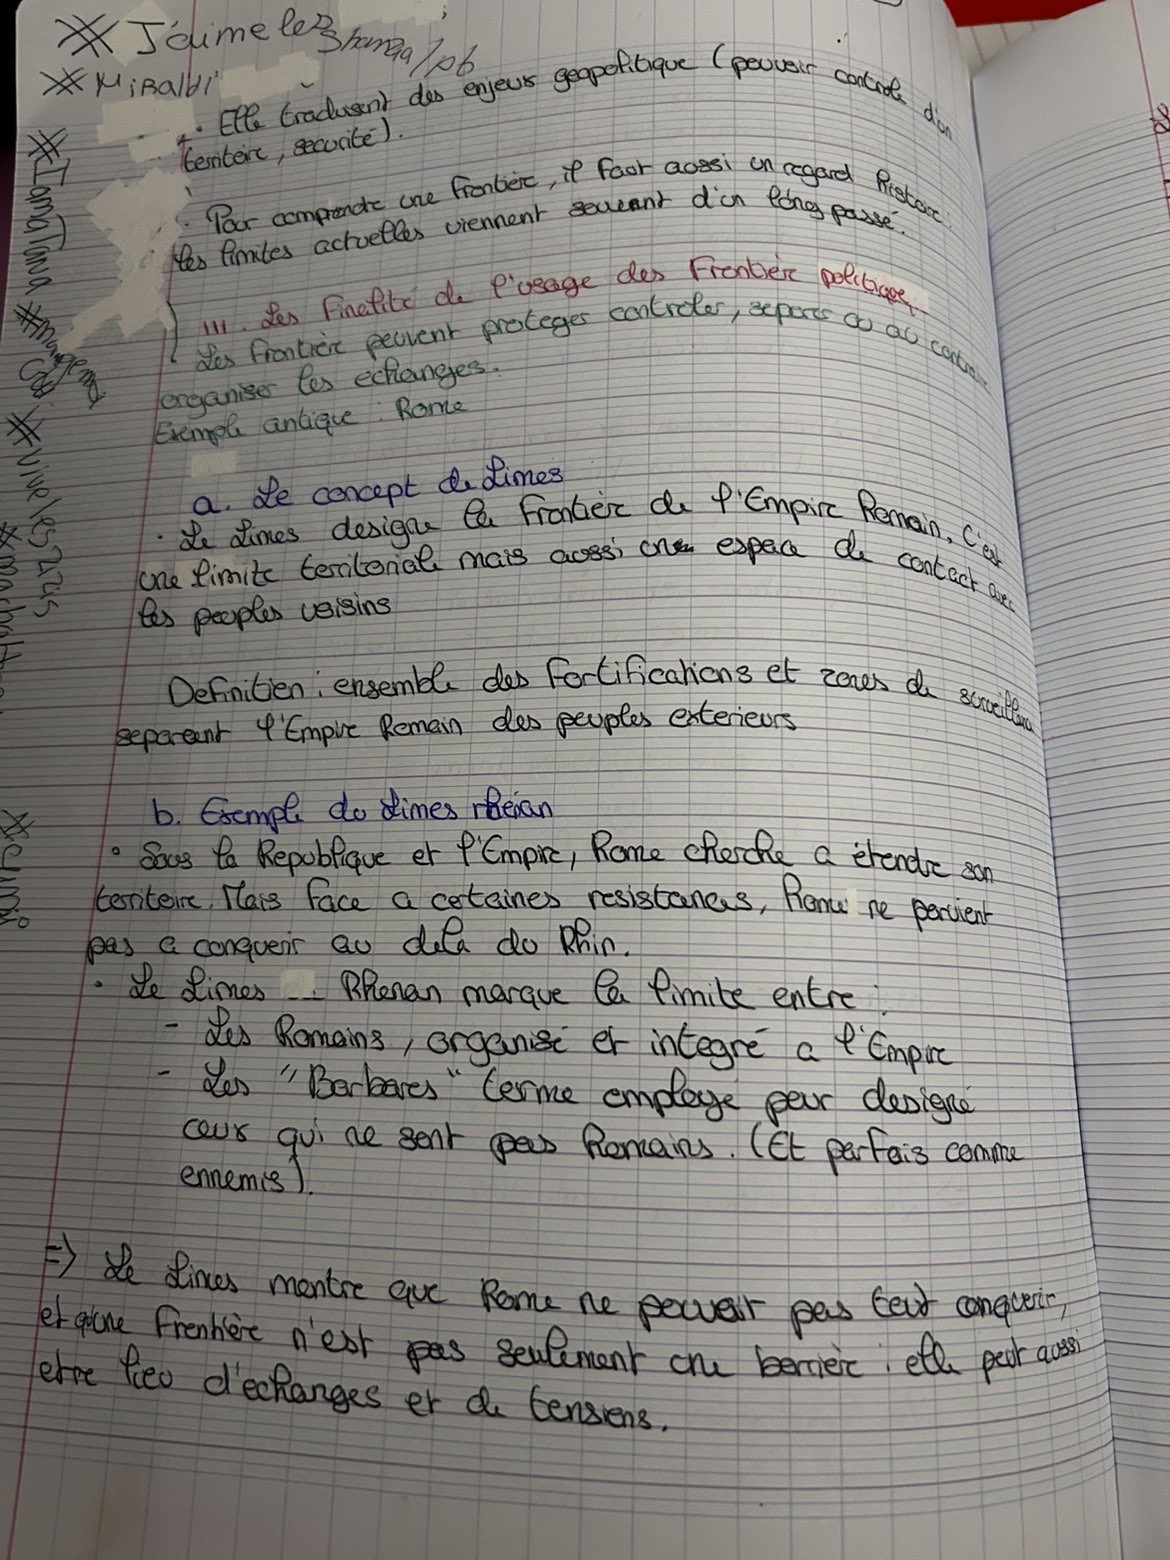 # J'aime les
# MiBalbi
. Elle traduisent des enjeux geopolitique (pouvoir controle d'un
territoire, securité).
. Pour comprendre une frontière, il faut aussi un regard histore.
les limites actuelles viennent souvent d'un long passé.
III. Les Finalité de l'usage des Frontière politique
Les frontière peuvent proteges controler, separer ou au contraire
organiser les echanges.
Exemple antique : Rome
a. Le concept de Limes
. Le Limes designe la frontière de l'Empire Romain. C'est
une limite territoriale mais aussi une espace de contact avec
les peuples voisins
Definition : ensemble des fortifications et zones de surveillance
separant l'Empire Romain des peuples exterieurs
b. Exemple du Limes rhéan
. Sous la Republique et l'Empire, Rome cherche a étendre son
territoire. Mais face a certaines resistances, Rome ne parvient
pas a conquerir au delà du Rhin.
. Le Limes Rhenan marque la limite entre :
- Les Romains, organisé et integré a l'Empire
- Les "Barbares" terme employé pour designé
ceux qui ne sont pas Romains. (Et parfois comme
ennemis).
=> Le Limes montre que Rome ne pouvait pas tout conquerir,
et qu'une Frontière n'est pas seulement une barrière : elle peut aussi
etre lieu d'echanges et de tensions.